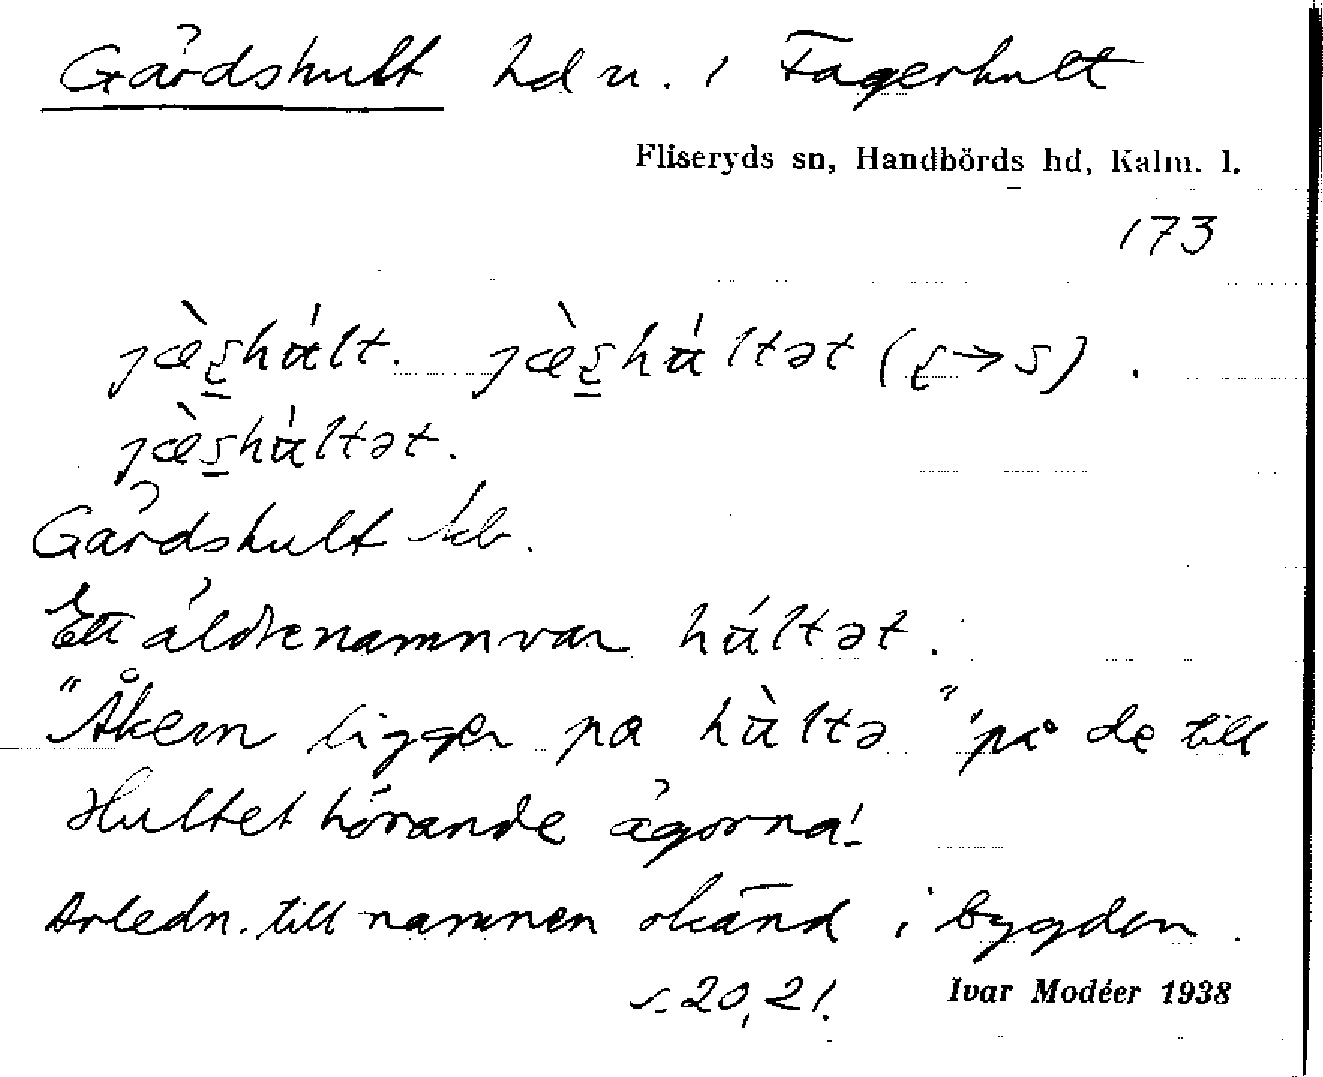 Gårdshult hdn. i Fagerhult
Fliseryds sn, Handbörds hd, Kalm. l.
173
jæ̀ʂhu̇́lt. jæ̀ʂhu̇́ltət (ʂ→s) .
jæ̀ʂhu̇́ltət.
Gårdshult kb.
Ett äldre namn var húltət.
"Åkern ligger på hùltə" 'på de till
Hultet hörande ägorna'.
Anledn. till namnen okänd i bygden.
s. 20, 21.
Ivar Modéer 1938